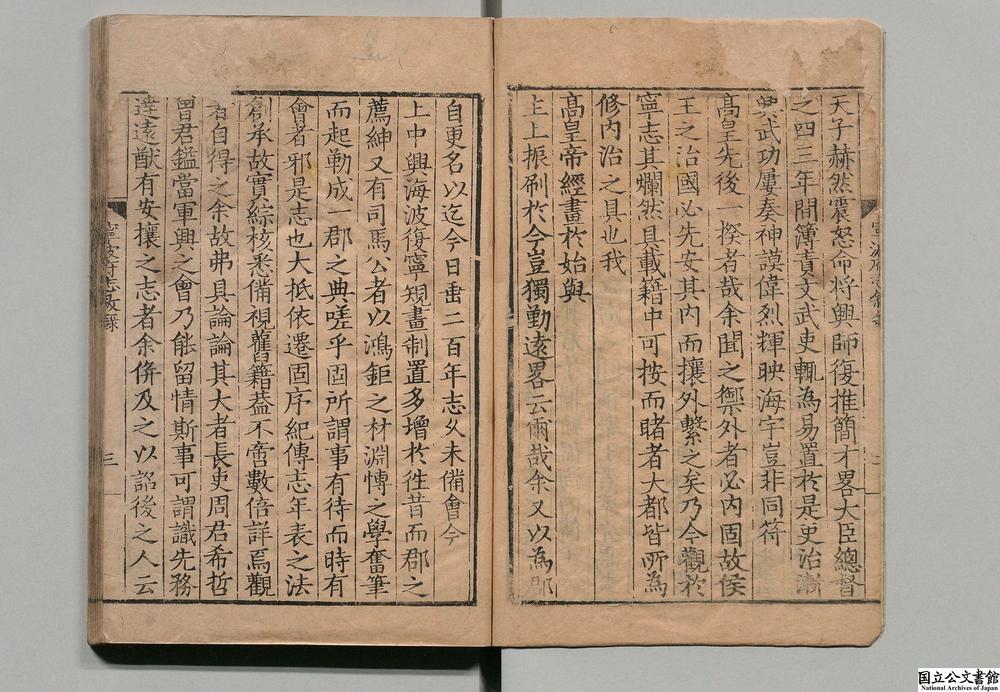 天子赫然震怒命将興師復推簡才畧大臣總督
之四三年間簿責文武吏輒為易置於是吏治漸
興武功屢奏神謨偉烈輝映海宇豈非同符
高皇先後一揆者哉余聞之禦外者必内固故侯
王之治國必先安其内而攘外繫之矣乃今觀於
寧志其爛然具載籍中可按而睹者大都皆所為
修内治之具也我
高皇帝經畫於始與
主上振刷於今豈獨勤遠畧云爾哉余又以為郡
自更名以迄今日垂二百年志久未備會今
上中興海波復寧規畫制置多增於徃昔而郡之
薦紳又有司馬公者以鴻鉅之材淵慱之學奮筆
而起勒成一郡之典嗟乎固所謂事有待而時有
會者邪是志也大抵依遷固序紀傳志年表之法
創承故實綜核悉備視舊籍葢不啻數倍詳焉觀
者自得之余故弗具論論其大者長吏周君希哲
曾君鎰當軍興之會乃能留情斯事可謂識先務
達遠猷有安攘之志者余併及之以詔後之人云
三
国立公文書館
National Archives of Japan